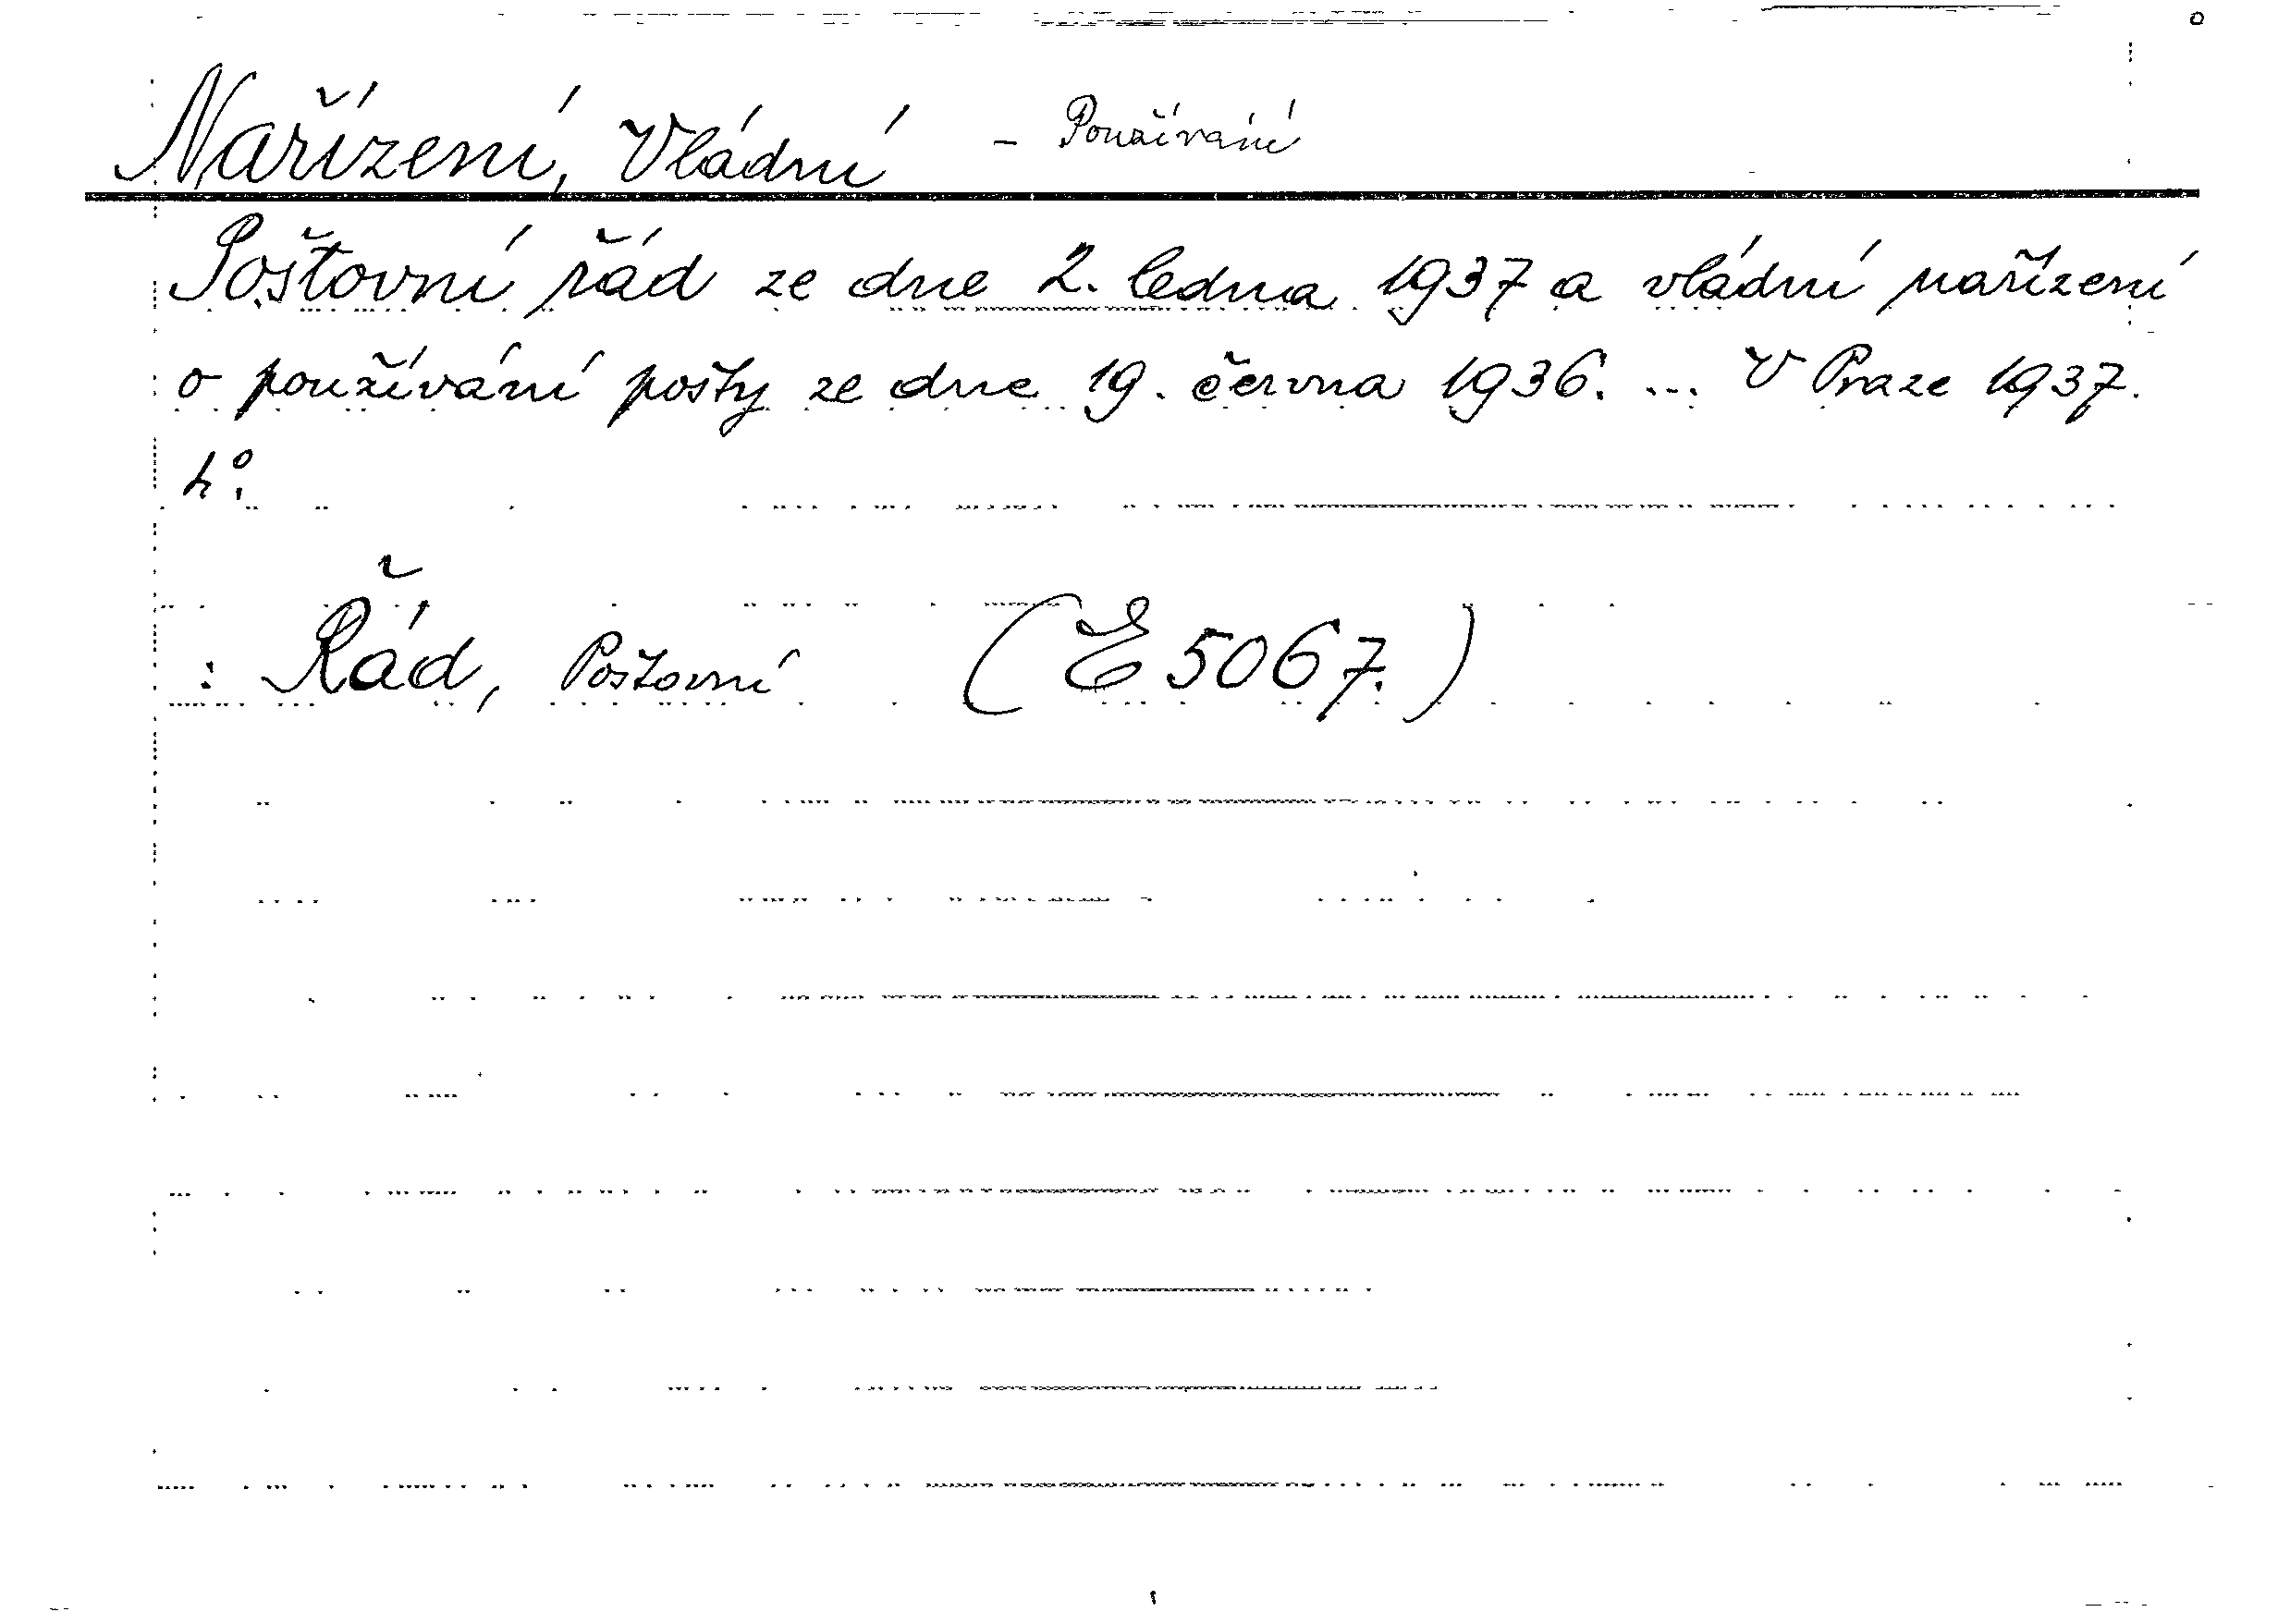 Nařízení, Vládní - Používání
Poštovní řád ze dne 2. ledna 1937 a vládní nařízení
o používání pošty ze dne 19. června 1936. ... V Praze 1937.
4°.
: Řád, Poštovní (E 5067.)